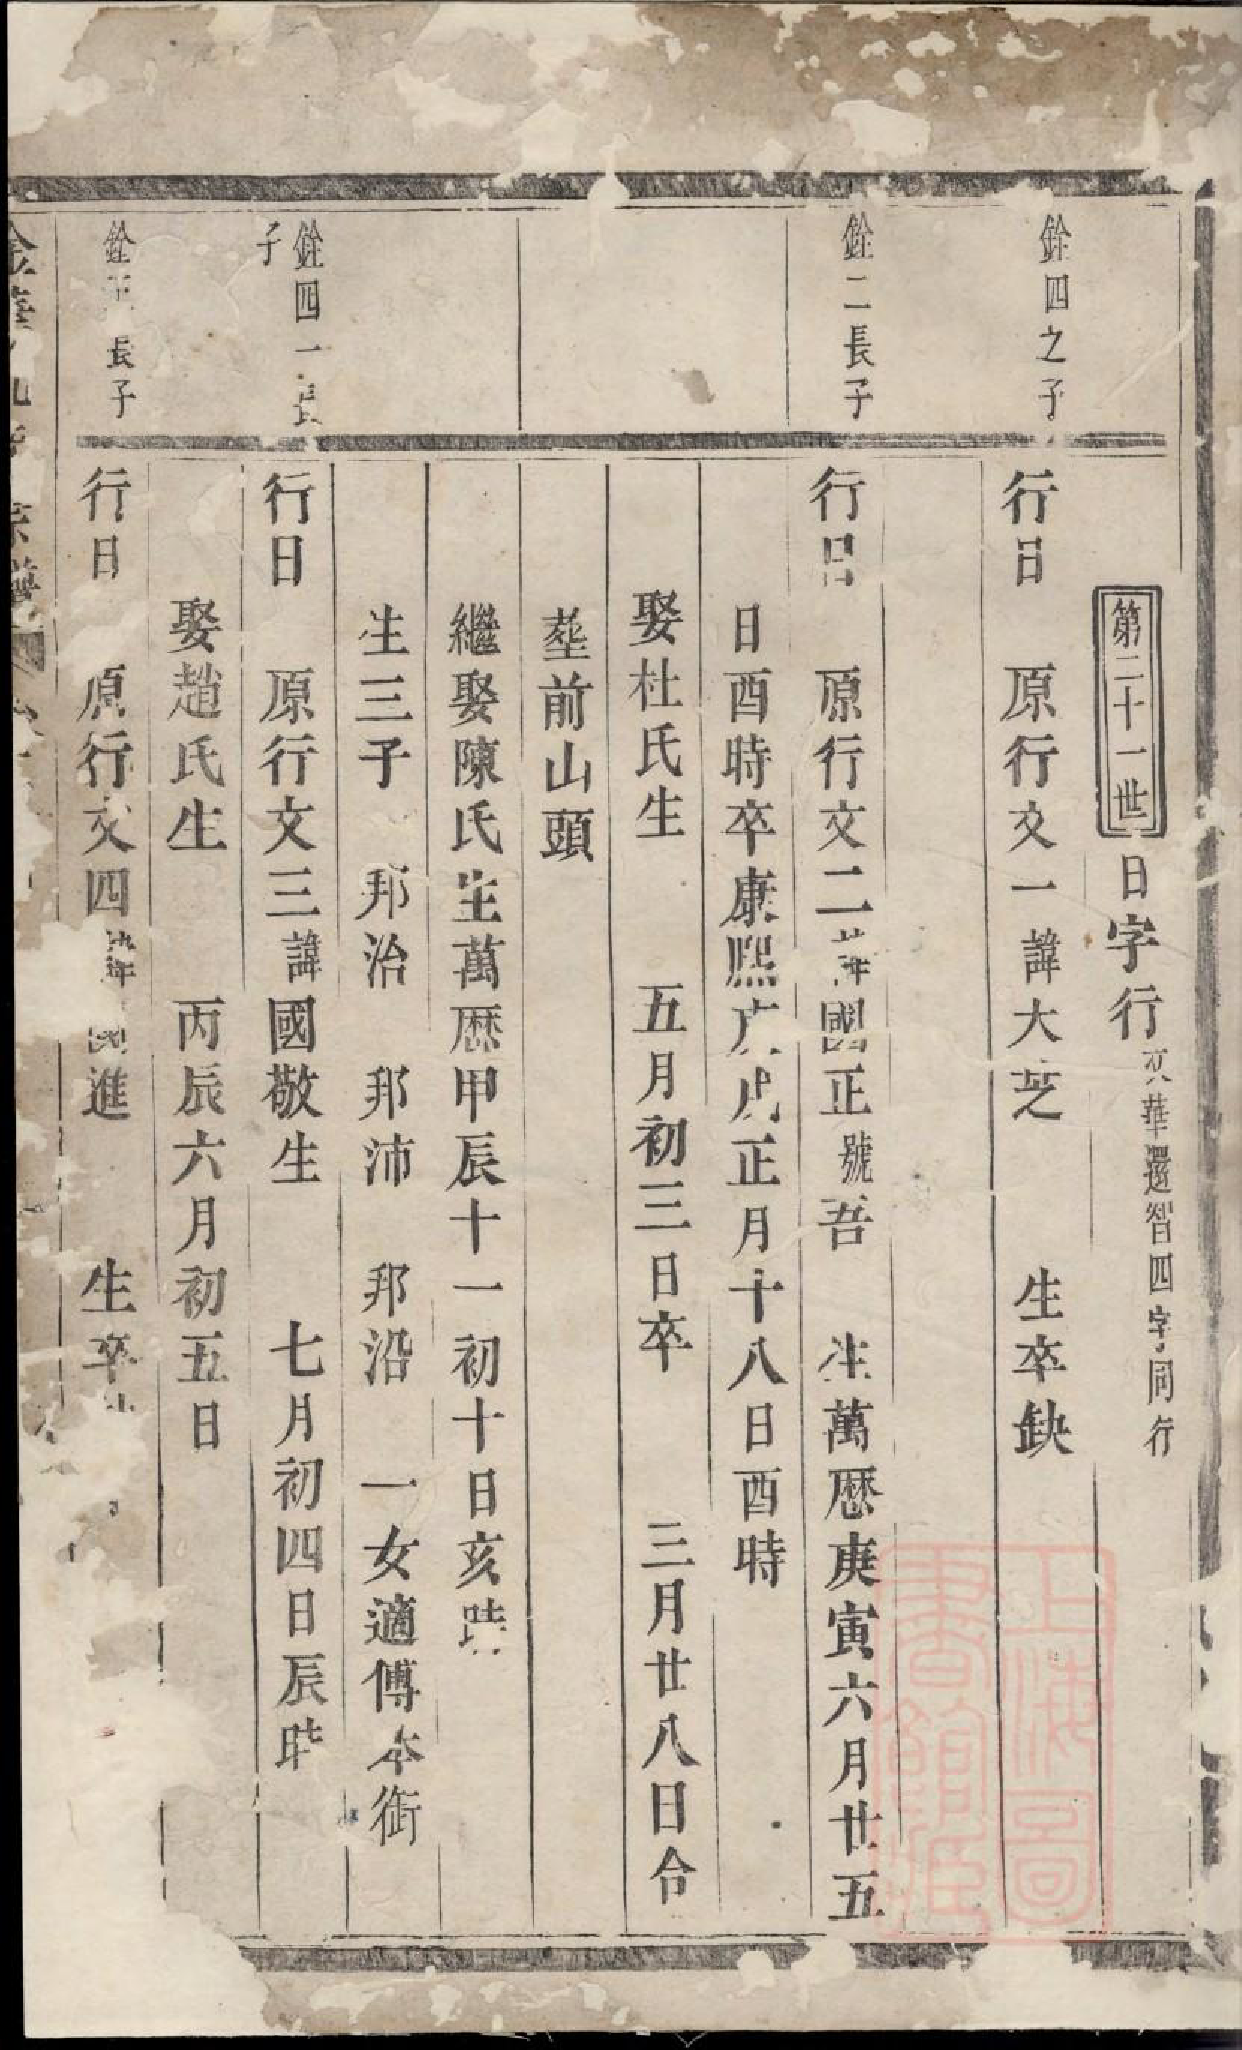 第二十一世 日字行 文華還智四字同行
銓四之子
行日 原行文一諱大芝 生卒缺
銓二長子
行日 原行文二諱國正號吾 生萬歷庚寅六月廿五
日酉時卒康熙庚戌正月十八日酉時
娶杜氏生 五月初三日卒 三月廿八日合
塟前山頭
繼娶陳氏生萬歷甲辰十一初十日亥時
生三子 邦治 邦沛 邦沿 一女適傅本衙
銓四一長
子
行日 原行文三諱國敬生 七月初四日辰時
娶趙氏生 丙辰六月初五日
銓 長子
行日 原行文四諱國進 生卒
上海圖
書館藏